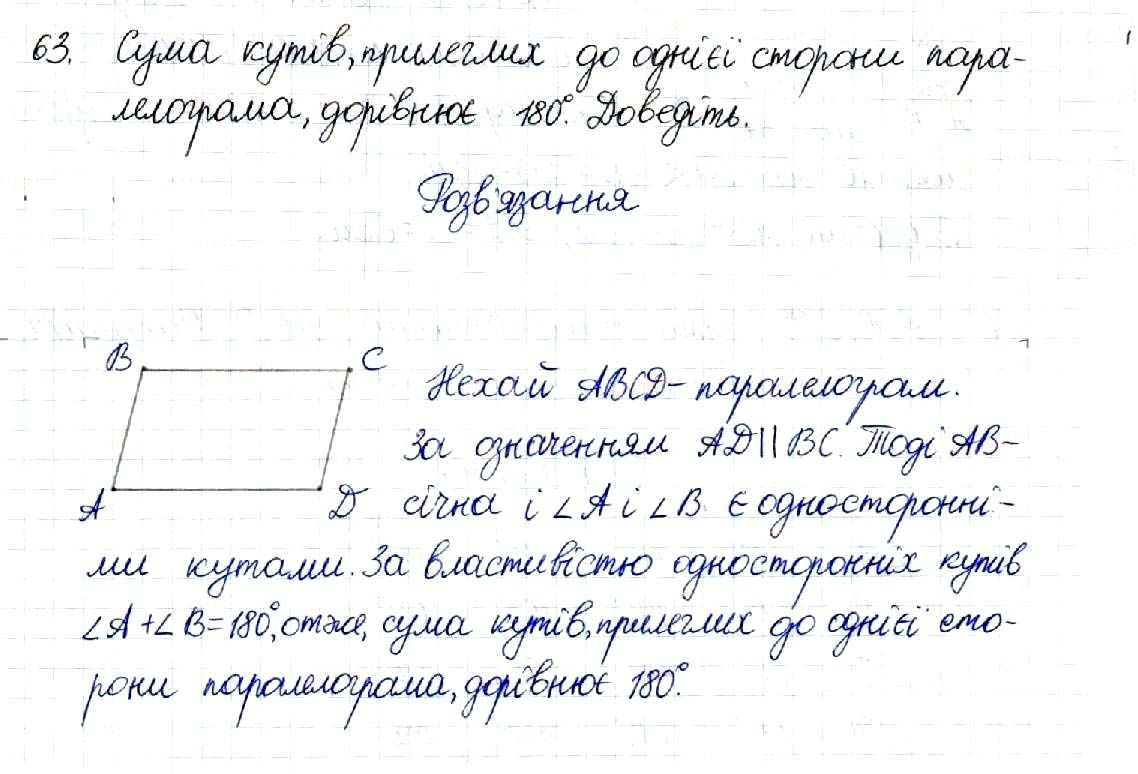 63. Сума кутів, прилеглих до однієї сторони пара-
лелограма, дорівнює 180°. Доведіть.
Розв'язання
B
C
A
D
Нехай ABCD – паралелограм.
За означенням AD || BC. Тоді AB –
січна і ∠A і ∠B є односторонні-
ми кутами. За властивістю односторонніх кутів
∠A + ∠B = 180°, отже, сума кутів, прилеглих до однієї сто-
рони паралелограма, дорівнює 180°.